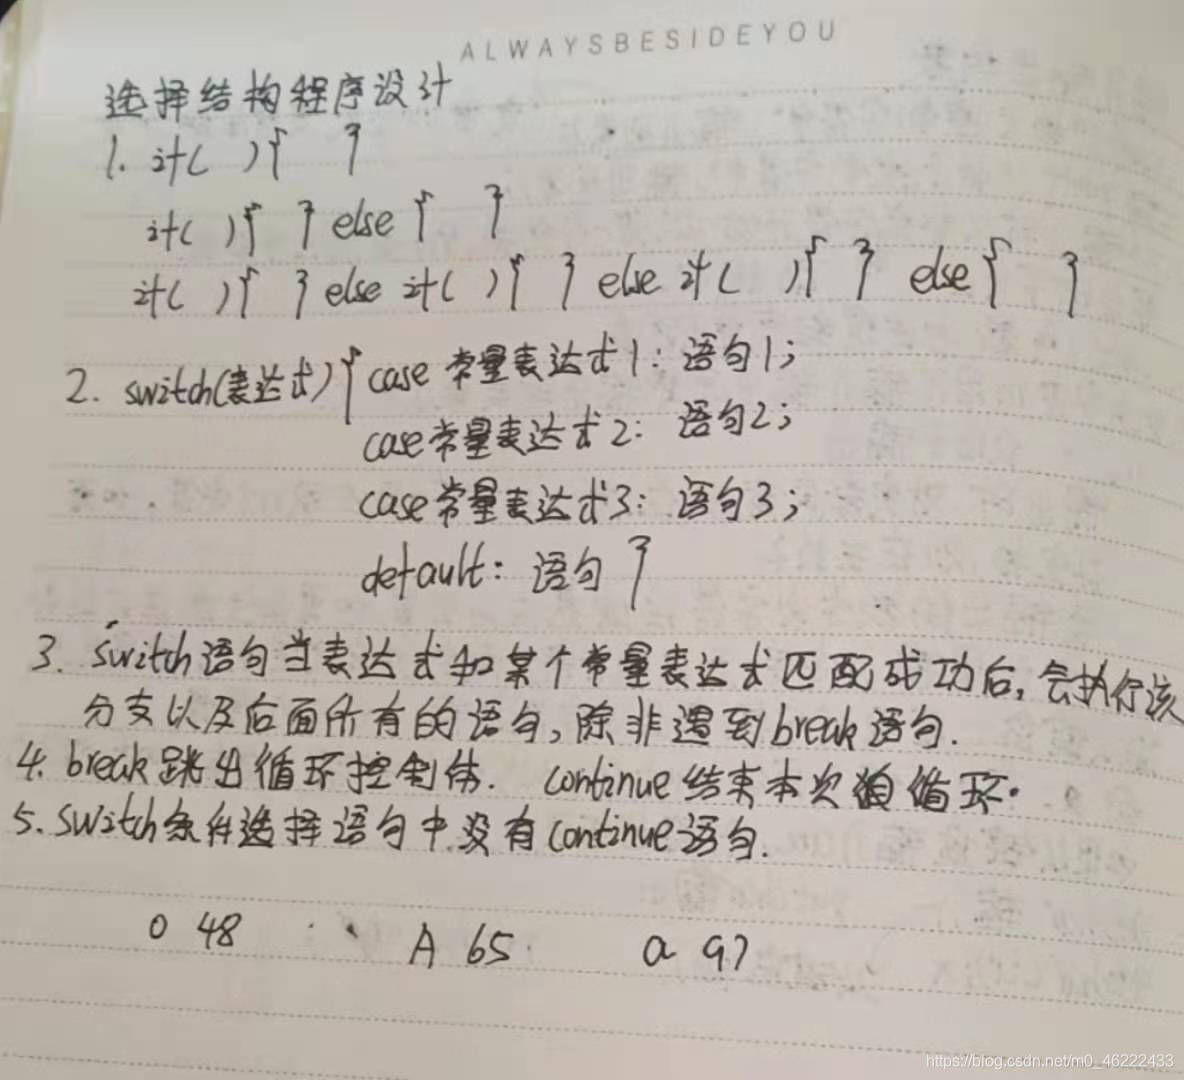 ALWAYSBESIDEYOU
选择结构程序设计
1. if( ){ }
if( ){ } else { }
if( ){ } else if( ){ } else if( ){ } else { }
2. switch(表达式){ case 常量表达式1: 语句1;
case 常量表达式2: 语句2;
case 常量表达式3: 语句3;
default: 语句 }
3. switch语句当表达式和某个常量表达式匹配成功后,会执行该
分支以及后面所有的语句,除非遇到break语句.
4. break跳出循环控制体. continue结束本次循环.
5. switch条件选择语句中没有continue语句.
0 48 A 65 a 97
https://blog.csdn.net/m0_46222433